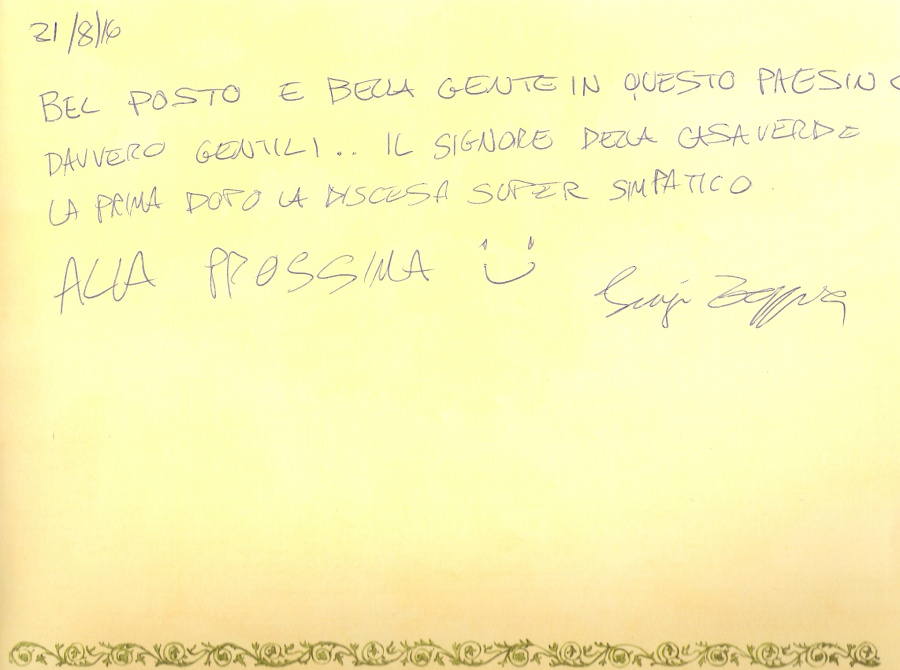 21/8/16
BEL POSTO E BELLA GENTE IN QUESTO PAESINO
DAVVERO GENTILI.. IL SIGNORE DELLA CASA VERDE
LA PRIMA DOPO LA DISCESA SUPER SIMPATICO.
ALLA PROSSIMA